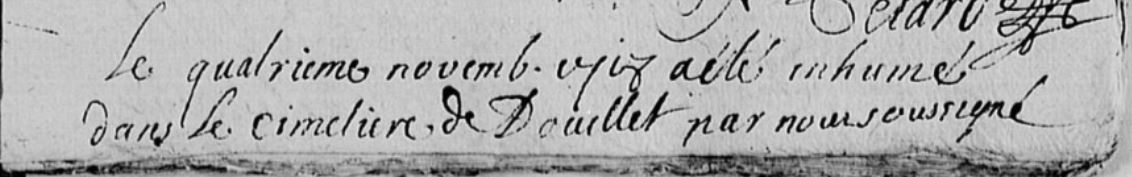 Letard
Le quatrieme novemb. 1718 a été inhumé
dans le cimetiere de Douillet par nous soussigné